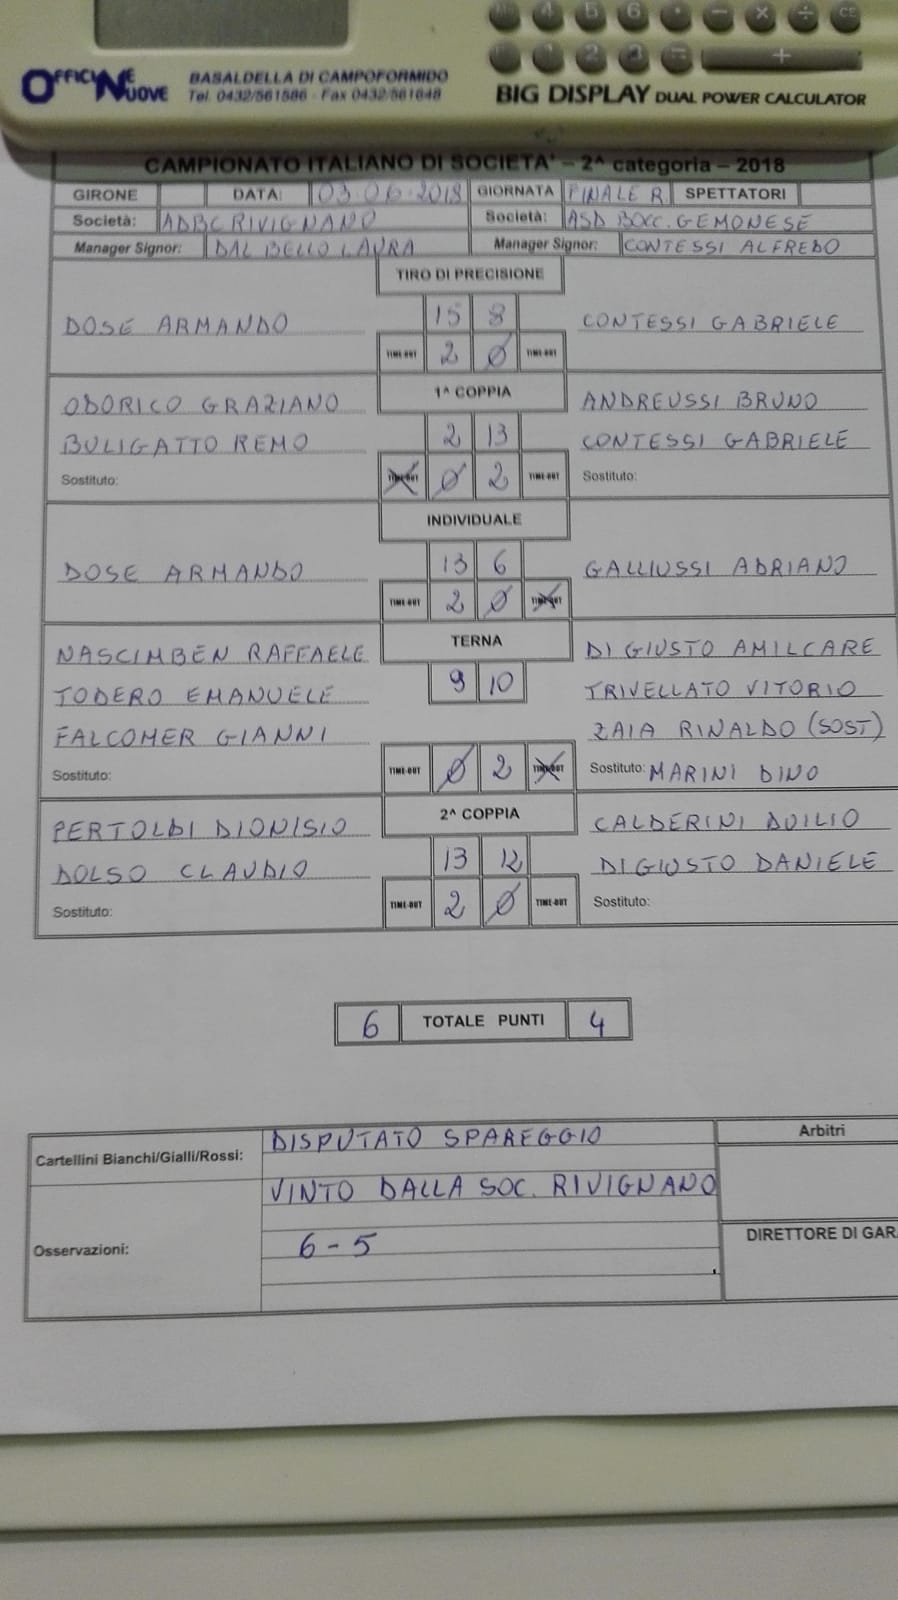 4 5 6 · − × ÷ CE
1 2 3 = +
OFFICINE NUOVE BASALDELLA DI CAMPOFORMIDO
Tel. 0432/561586 - Fax 0432/561648
BIG DISPLAY DUAL POWER CALCULATOR
CAMPIONATO ITALIANO DI SOCIETA' – 2^ categoria – 2018
GIRONE DATA: 03.06.2018 GIORNATA FINALE R. SPETTATORI
Società: ADBC RIVIGNANO Società: ASD BOCC. GEMONESE
Manager Signor: DAL BELLO LAURA Manager Signor: CONTESSI ALFREDO
TIRO DI PRECISIONE
DOSE ARMANDO 15 8 CONTESSI GABRIELE
TIME-OUT 2 0 TIME-OUT
1^ COPPIA
ODORICO GRAZIANO ANDREUSSI BRUNO
BULIGATTO REMO 2 13 CONTESSI GABRIELE
Sostituto: TIME-OUT 0 2 TIME-OUT Sostituto:
INDIVIDUALE
DOSE ARMANDO 13 6 GALLIUSSI ADRIANO
TIME-OUT 2 0 TIME-OUT
TERNA
NASCIMBEN RAFFAELE DI GIUSTO AMILCARE
TODERO EMANUELE 9 10 TRIVELLATO VITORIO
FALCOMER GIANNI ZAIA RINALDO (SOST)
Sostituto: TIME-OUT 0 2 TIME-OUT Sostituto: MARINI DINO
2^ COPPIA
PERTOLDI DIONISIO CALDERINI DUILIO
DOLSO CLAUDIO 13 12 DI GIUSTO DANIELE
Sostituto: TIME-OUT 2 0 TIME-OUT Sostituto:
6 TOTALE PUNTI 4
Cartellini Bianchi/Gialli/Rossi: DISPUTATO SPAREGGIO Arbitri
VINTO DALLA SOC. RIVIGNANO
Osservazioni: 6 - 5 DIRETTORE DI GAR